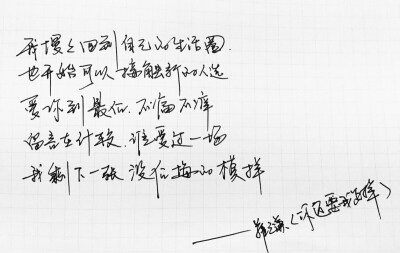 我慢慢回到自己的生活圈
也开始可以接触新的人选
爱你到最后 不痛不痒
留言在计较 谁爱过一场
我剩下一张没后悔的模样
——薛之谦《你还要我怎样》